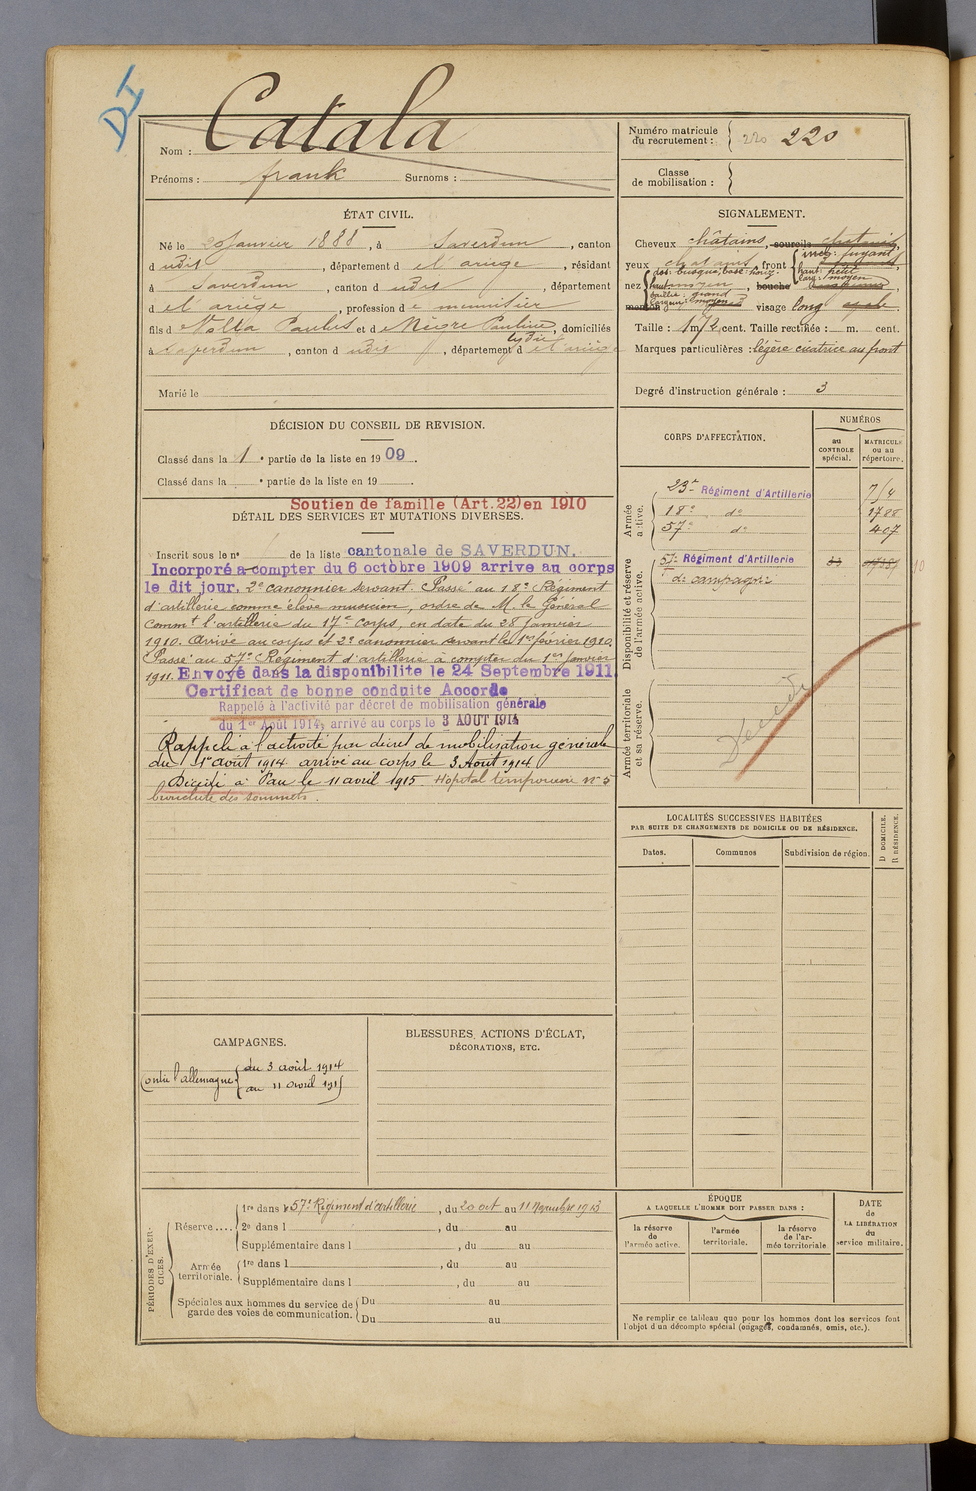 DI
Catala
Nom :
Prénoms : frank Surnoms :
Numéro matricule du recrutement : 220 220
Classe de mobilisation :
ÉTAT CIVIL.
Né le 20 Janvier 1888, à Saverdun, canton
d udit, département d e l'ariège, résidant
à Saverdun, canton d udit, département
d e l'ariège, profession d e menuisier
fils d Paulus et d e Nègre Pauline, domiciliés
Lydie
à Saverdun, canton d udit, département d e l'ariège
Marié le
SIGNALEMENT.
Cheveux châtains, sourcils chatains,
yeux chatains, front
incl: fuyant
haut: petit
larg: moyen
dos: busqué, base: horiz.
nez haut: moyen, bouche
saillie: grand
largeur: moyen
menton visage long ovale.
Taille : 1 m 72 cent. Taille rectifiée : m. cent.
Marques particulières : légère cicatrice au front
Degré d'instruction générale : 3
DÉCISION DU CONSEIL DE REVISION.
Classé dans la 1e partie de la liste en 1909.
Classé dans la e partie de la liste en 19 .
Soutien de famille (Art. 22) en 1910
DÉTAIL DES SERVICES ET MUTATIONS DIVERSES.
Inscrit sous le n° de la liste cantonale de SAVERDUN.
Incorporé a compter du 6 octobre 1909 arrive au corps
le dit jour, 2e canonnier servant. Passé au 18e Régiment
d'artillerie comme élève musicien, ordre de M. le Général
Commt l'artillerie du 17e Corps, en date du 28 janvier
1910. Arrivé au corps et 2e canonnier servant le 1er février 1910.
Passé au 57e Régiment d'artillerie à compter du 1er Janvier
1911. Envoyé dans la disponibilite le 24 Septembre 1911.
Certificat de bonne conduite Accordé
Rappelé à l'activité par décret de mobilisation générale
du 1er Août 1914, arrivé au corps le 3 AOUT 1914
Rappelé à l'activité par décret de mobilisation générale
du 1er août 1914 arrivé au corps le 3 Août 1914
Décédé à Pau le 11 avril 1915 Hôpital temporaire n° 5
bronchite des sommets.
CORPS D'AFFECTATION.
NUMÉROS
au CONTROLE spécial.
MATRICULE ou au répertoire.
Armée active.
23e Régiment d'Artillerie 714
18e do 1788
57e do 407
Disponibilité et réserve de l'armée active.
57e Régiment d'Artillerie
de campagne
Armée territoriale et sa réserve.
Décédé
LOCALITÉS SUCCESSIVES HABITÉES
PAR SUITE DE CHANGEMENTS DE DOMICILE OU DE RÉSIDENCE.
Dates. Communes Subdivision de région.
D DOMICILE.
R RÉSIDENCE.
CAMPAGNES.
Contre l'allemagne du 3 août 1914
au 11 avril 1915
BLESSURES, ACTIONS D'ÉCLAT,
DÉCORATIONS, ETC.
PÉRIODES D'EXERCICES.
Réserve....
1re dans le 57e Régiment d'artillerie, du 20 oct au 11 Novembre 1913
2e dans l , du au
Supplémentaire dans l , du au
Armée territoriale.
1re dans l , du au
Supplémentaire dans l , du au
Spéciales aux hommes du service de garde des voies de communication.
Du au
Du au
ÉPOQUE
A LAQUELLE L'HOMME DOIT PASSER DANS :
la réserve de l'armée active.
l'armée territoriale.
la réserve de l'armée territoriale
DATE de LA LIBÉRATION du service militaire.
Ne remplir ce tableau que pour les hommes dont les services font
l'objet d'un décompte spécial (engagés, condamnés, omis, etc.).